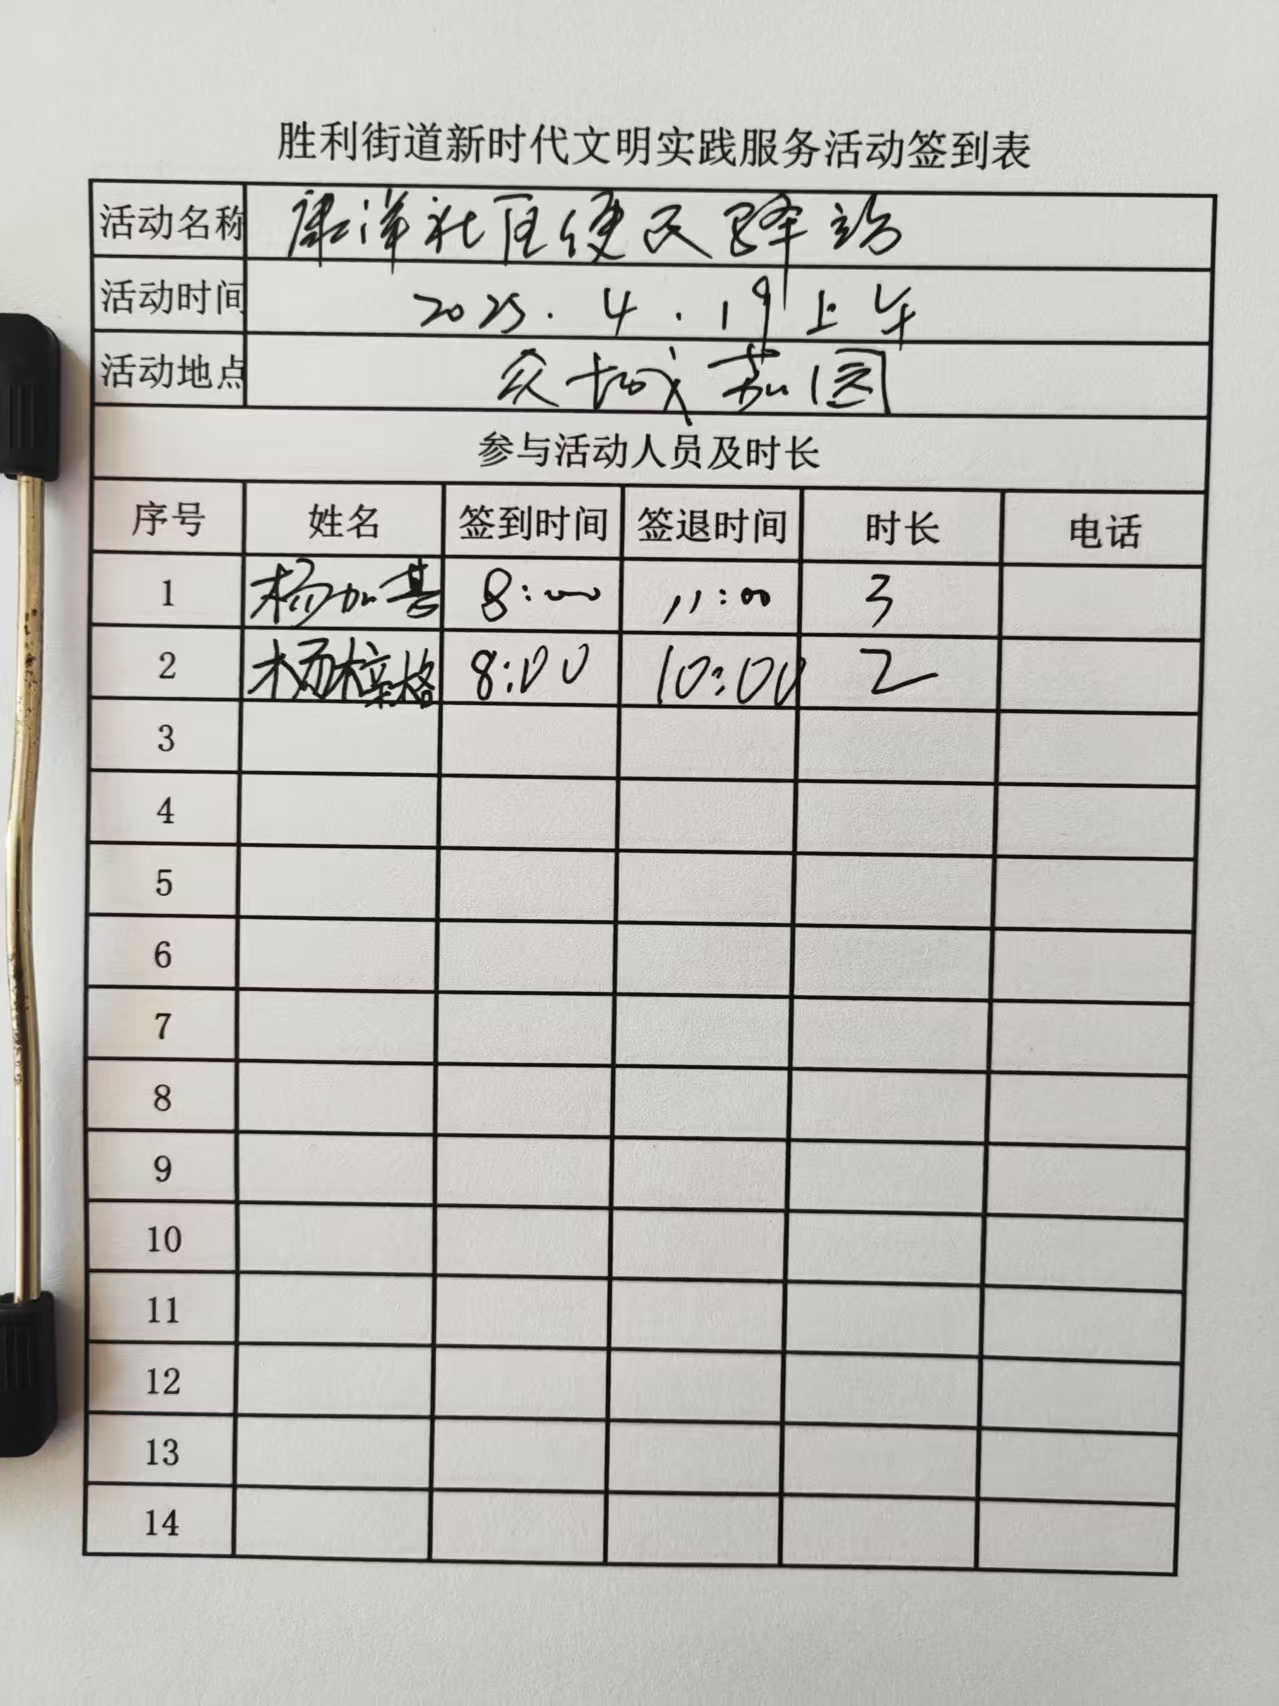 胜利街道新时代文明实践服务活动签到表
活动名称 康洋社区便民驿站
活动时间 2025.4.19上午
活动地点 众城嘉园
参与活动人员及时长
序号 姓名 签到时间 签退时间 时长 电话
1 杨加基 8:00 11:00 3
2 杨梓格 8:00 10:00 2
3
4
5
6
7
8
9
10
11
12
13
14